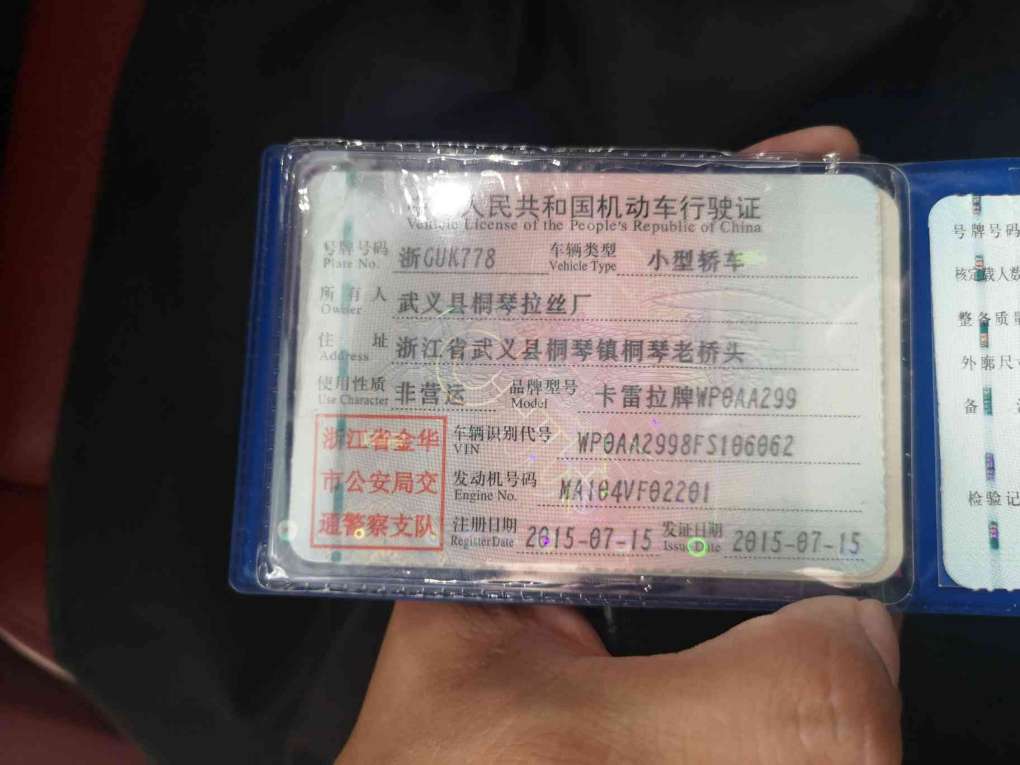 人民共和国机动车行驶证
Vehicle License of the People's Republic of China
号牌号码 浙GUK778 车辆类型 小型轿车
Plate No. Vehicle Type
所有人 武义县桐琴拉丝厂
Owner
住址 浙江省武义县桐琴镇桐琴老桥头
Address
使用性质 非营运 品牌型号 卡雷拉牌WP0AA299
Use Character Model
浙江省金华
市公安局交
通警察支队
车辆识别代号 WP0AA2998FS106062
VIN
发动机号码 MA104VF02201
Engine No.
注册日期 2015-07-15 发证日期 2015-07-15
Register Date Issue Date
号牌号码
核定载人数
整备质量
外廓尺
备
检验记